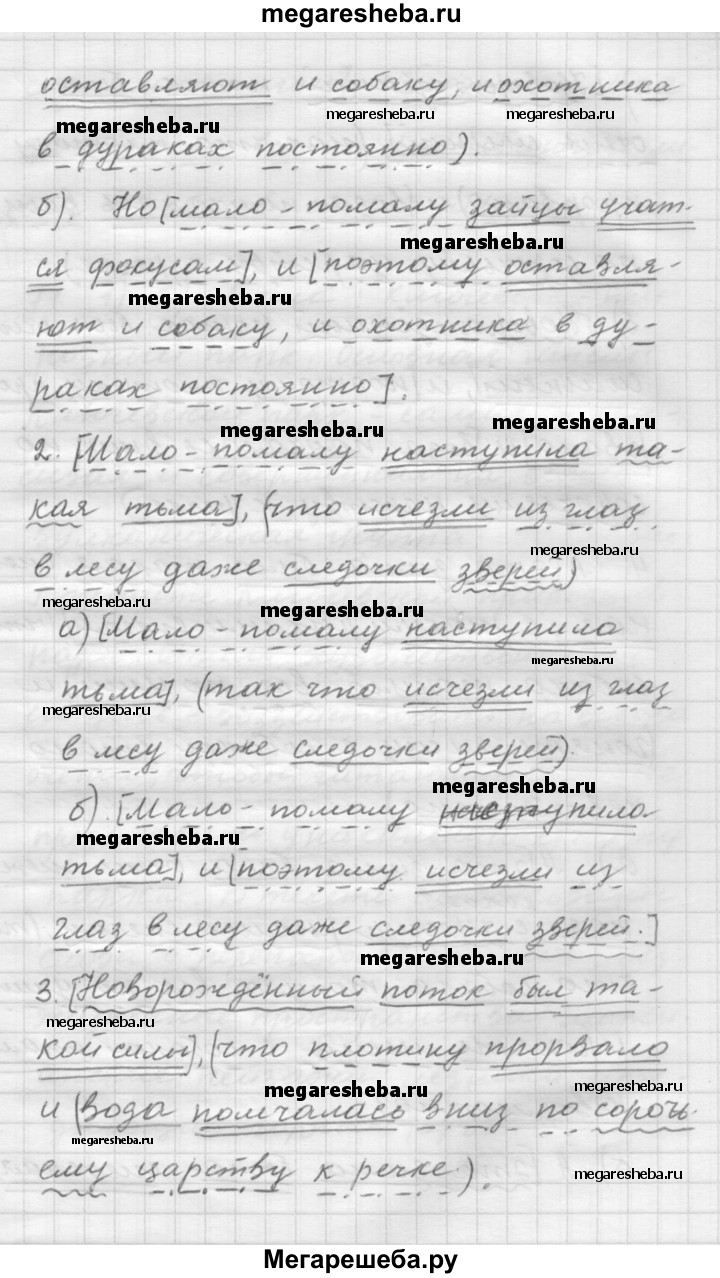 megaresheba.ru
оставляют и собаку, и охотника
megaresheba.ru megaresheba.ru megaresheba.ru
в дураках постоянно).
б). Но [мало-помалу зайцы учат-
megaresheba.ru
ся фокусам], и [поэтому оставля-
megaresheba.ru
ют и собаку, и охотника в ду-
раках постоянно].
megaresheba.ru megaresheba.ru
2. [Мало-помалу наступила та-
кая тьма], (что исчезли из глаз
megaresheba.ru
в лесу даже следочки зверей)
megaresheba.ru megaresheba.ru
а) [Мало-помалу наступила
megaresheba.ru
тьма], (так что исчезли из глаз
megaresheba.ru
в лесу даже следочки зверей).
megaresheba.ru
б). [Мало-помалу наступила
megaresheba.ru
тьма], и [поэтому исчезли из
глаз в лесу даже следочки зверей.]
megaresheba.ru
3. [Новорождённый поток был та-
megaresheba.ru
кой силы], (что плотину прорвало
megaresheba.ru megaresheba.ru
и (вода помчалась вниз по сорочь
megaresheba.ru
ему царству к речке.).
megaresheba.ru
Мегарешеба.ру